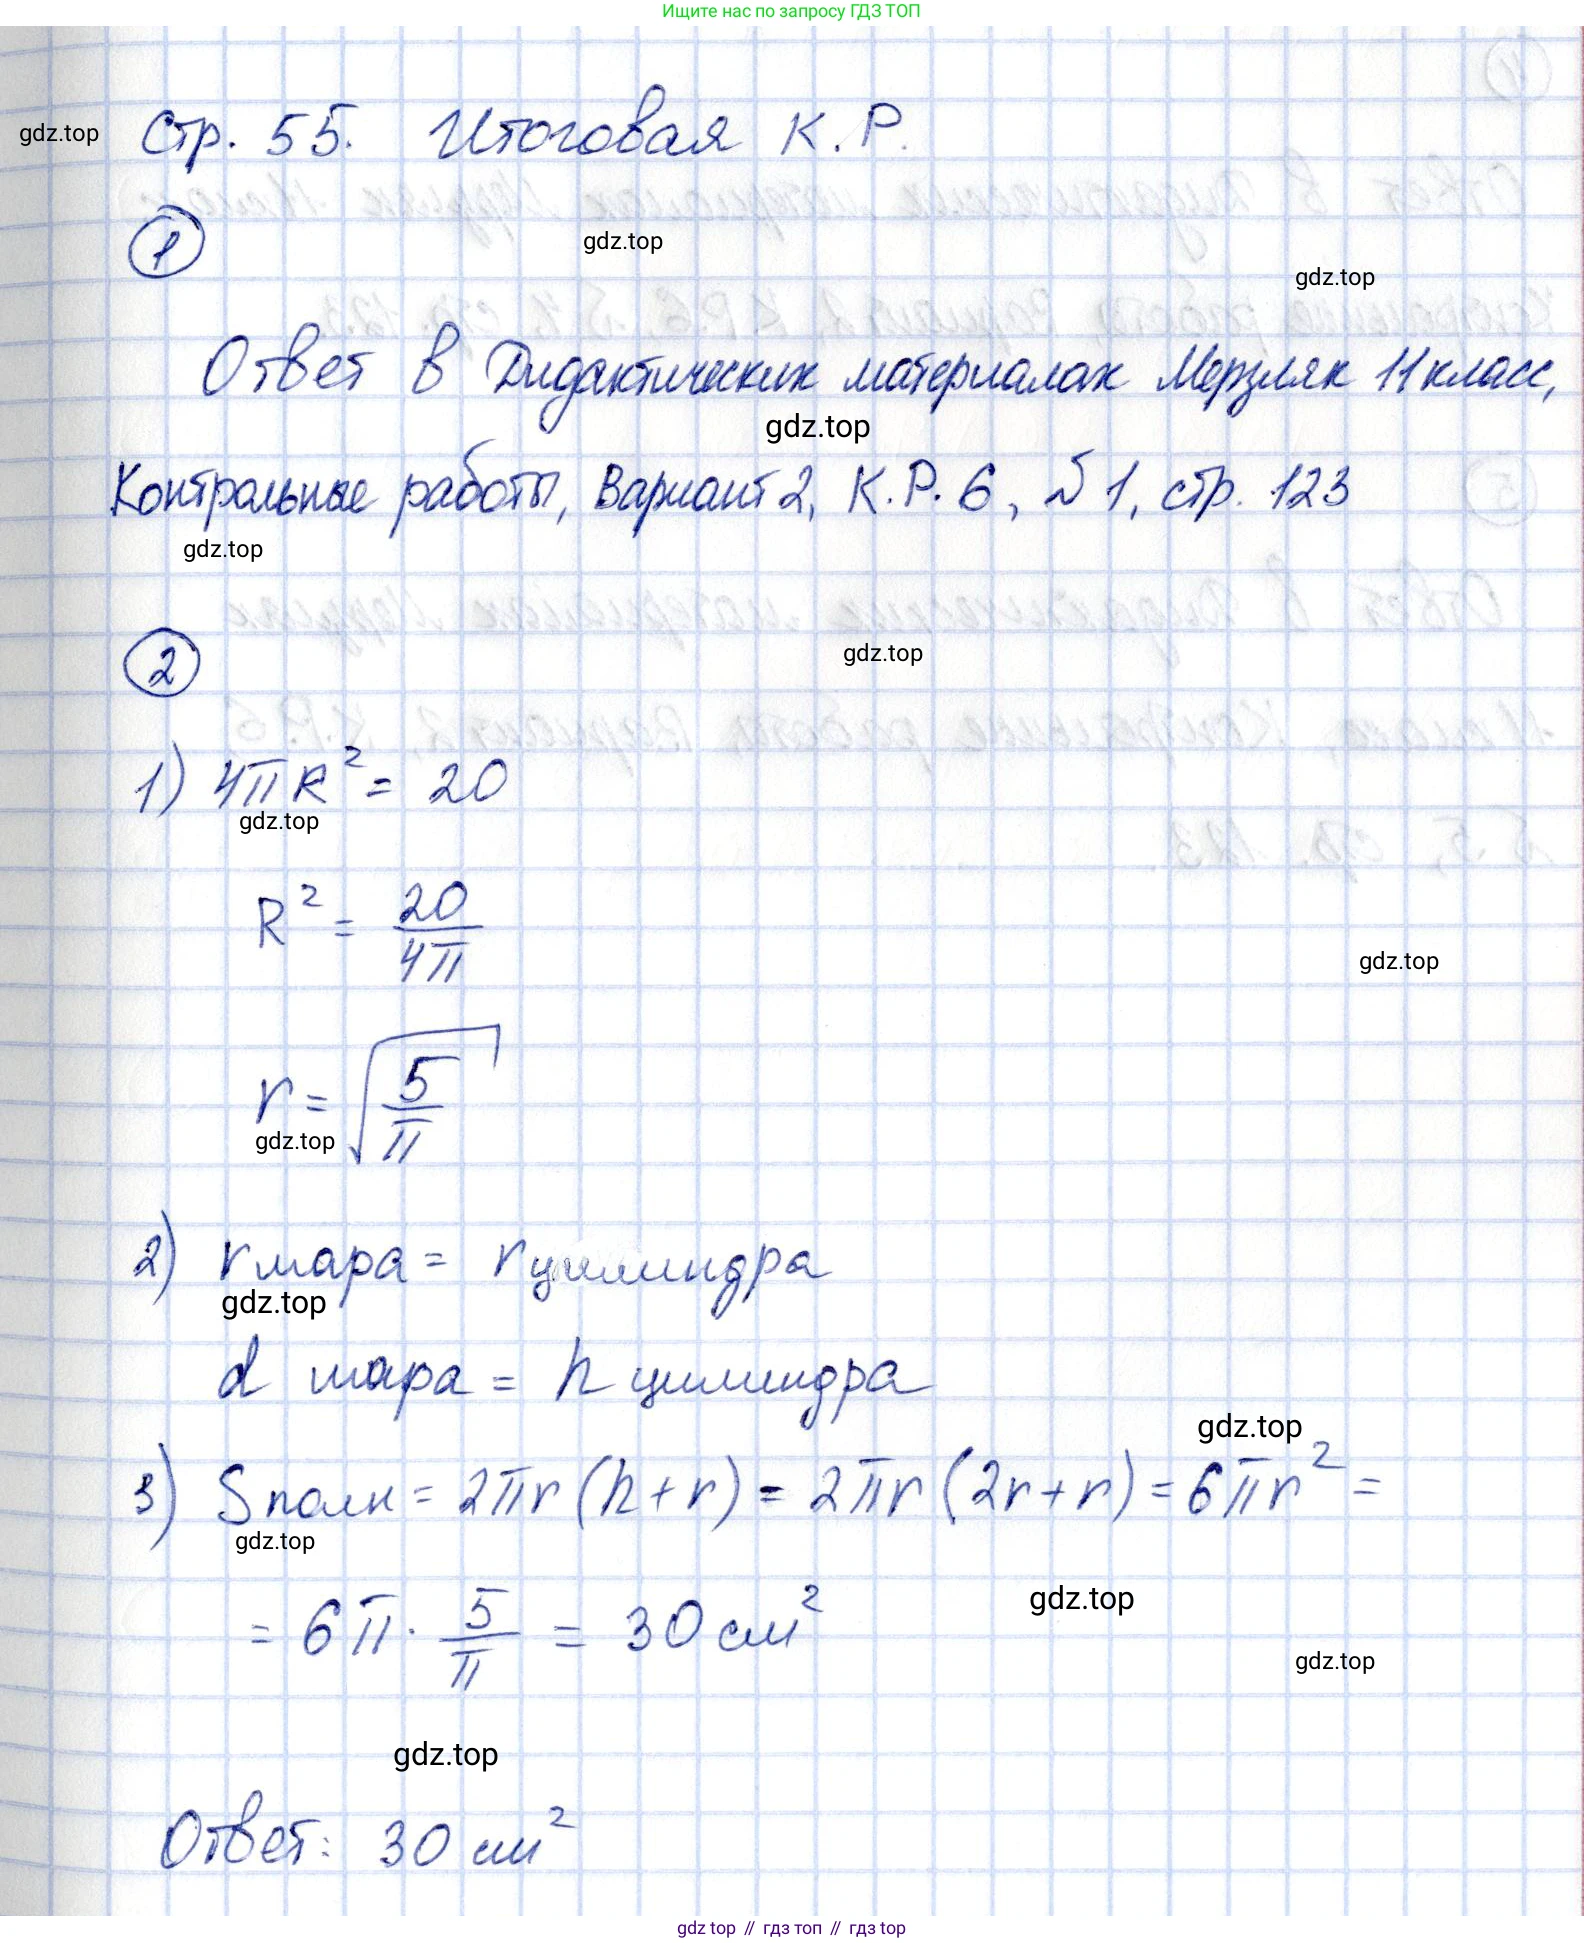 Ищите нас по запросу ГДЗ ТОП
Стр. 55. Итоговая К.Р.
gdz.top
1
gdz.top
gdz.top
Ответ в Дидактических материалах Мерзляк 11 класс,
gdz.top
Контрольные работы, Вариант 2, К.Р. 6, №1, стр. 123
gdz.top
2
gdz.top
1) 4πR² = 20
gdz.top
R² = 20/4π
gdz.top
r = √(5/π)
gdz.top
2) r шара = r цилиндра
gdz.top
d шара = h цилиндра
gdz.top
3) Sполн = 2πr(h+r) = 2πr(2r+r) = 6πr² =
gdz.top
= 6π · 5/π = 30 см²
gdz.top
gdz.top
gdz.top
Ответ: 30 см²
gdz top // гдз топ // gdz top